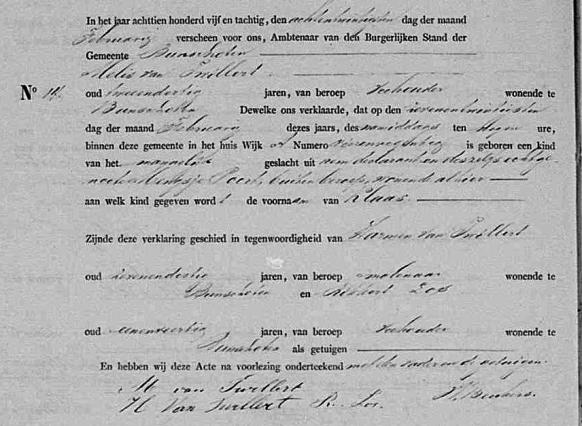 In het jaar achttien honderd vijf en tachtig, den achtentwintigsten dag der maand
Februarij verscheen voor ons, Ambtenaar van den Burgerlijken Stand der
Gemeente Bunschoten
Melis van Twillert
No 14.
oud tweeendertig jaren, van beroep veehouder wonende te
Bunschoten Dewelke ons verklaarde, dat op den zevenentwintigsten
dag der maand Februarij dezes jaars, des namiddags ten ure,
binnen deze gemeente in het huis Wijk A Numero is geboren een kind
van het mannelijk geslacht uit hem declarant en deszelfs echtge
noote Poort, buiten beroep, wonende alhier
aan welk kind gegeven word t de voornaam van Klaas.
Zijnde deze verklaring geschied in tegenwoordigheid van Harmen van Twillert
oud zevenendertig jaren, van beroep molenaar wonende te
Bunschoten en
oud eenenveertig jaren, van beroep veehouder wonende te
Bunschoten als getuigen
En hebben wij deze Acte na voorlezing onderteekend met den vader en de getuigen.
M van Twillert
H van Twillert R. Los.